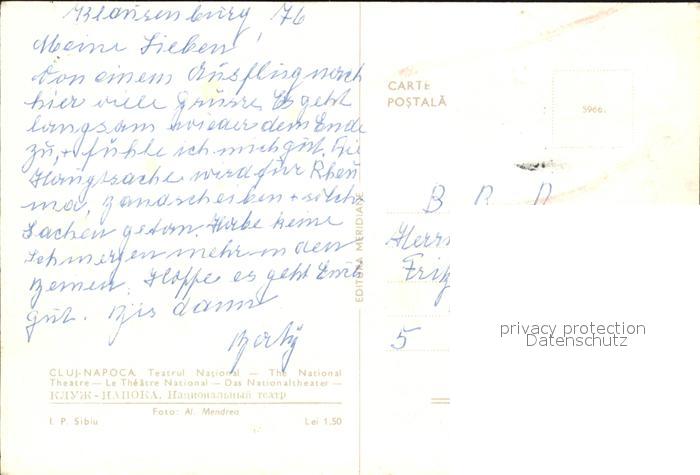 Klausenburg, 76
Meine Lieben
Von einem Ausflug nach
hier viele Grüsse. Es geht
langsam wieder dem Ende
zu, + fühle ich mich gut. Die
Hauptsache wird für Rheu
ma, Bandscheiben + solche
Sachen getan. Habe keine
Schmerzen mehr in den
Beinen. Hoffe es geht Euch
gut. Bis dann
CLUJ-NAPOCA. Teatrul Național — The National
Theatre — Le Théâtre National — Das Nationaltheater —
КЛУЖ-НАПОКА. Национальный театр
Foto: Al. Mendrea
I. P. Sibiu
Lei 1,50
EDITURA MERIDIANE
CARTE
POȘTALĂ
5966.
B R D
Herrn
Fritz
5
privacy protection
Datenschutz